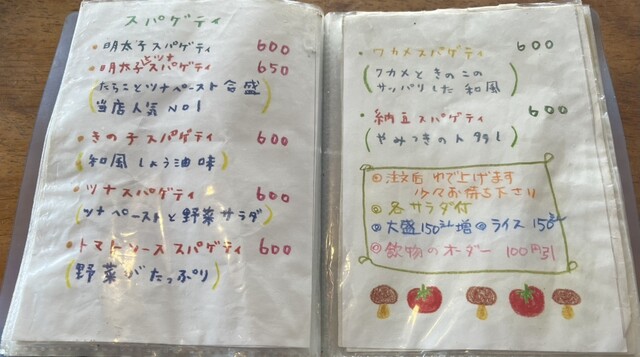 スパゲティ
・明太子スパゲティ 600
・明太子とツナスパゲティ 650
(たらことツナペースト合盛
当店人気 No1)
・きの子スパゲティ 600
(和風しょう油味)
・ツナスパゲティ 600
(ツナペーストと野菜サラダ)
・トマトソーススパゲティ 600
(野菜がたっぷり)
・ワカメスパゲティ 600
(ワカメときのこの
サッパリした和風)
・納豆スパゲティ 600
(やみつきの人多し)
◎注文后ゆで上げます
少々お待ち下さい
◎各サラダ付
◎大盛150円増 ◎ライス150円
◎飲物のオーダー 100円引